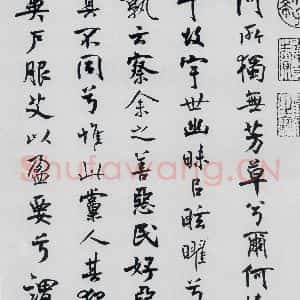 何所獨無芳草兮爾何
故宇世幽昧以眩曜兮
孰云察余之善惡民好
其不同兮惟此黨人其
戶服艾以盈要兮謂
Shufawang.CN